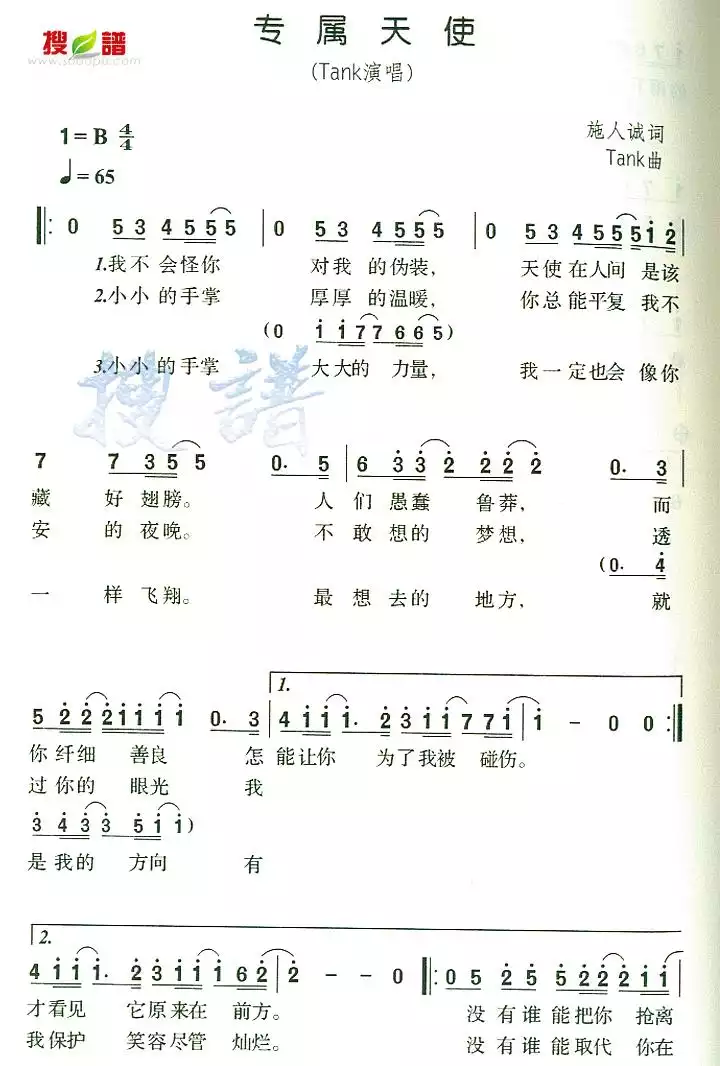 搜譜
www.sooopu.com
专属天使
(Tank演唱)
1=B 4/4
施人诚词
Tank曲
♩=65
0 5 3 4 5 5 5 | 0 5 3 4 5 5 5 | 0 5 3 4 5 5 5 i 2
1.我不会怪你 对我的伪装, 天使在人间是该
2.小小的手掌 厚厚的温暖, 你总能平复我不
(0 i i 7 7 6 6 5)
3.小小的手掌 大大的力量, 我一定也会像你
搜譜
7 7 3 5 5 0. 5 | 6 3 3 2 2 2 2 0. 3
藏好翅膀。 人们愚蠢鲁莽, 而
安的夜晚。 不敢想的梦想, 透
(0. 4
一样飞翔。 最想去的地方, 就
1.
5 2 2 2 i i i i 0. 3 | 4 i i i. 2 3 i i 7 7 7 i | i - 0 0 :
你纤细善良 怎能让你 为了我被碰伤。
过你的眼光 我
3 4 3 3 5 i i)
是我的方向 有
2.
4 i i i. 2 3 i i i 6 2 | 2 - - 0 : 0 5 2 5 5 2 2 2 i i
才看见 它原来在前方。 没有谁能把你抢离
我保护 笑容尽管灿烂。 没有谁能取代你在